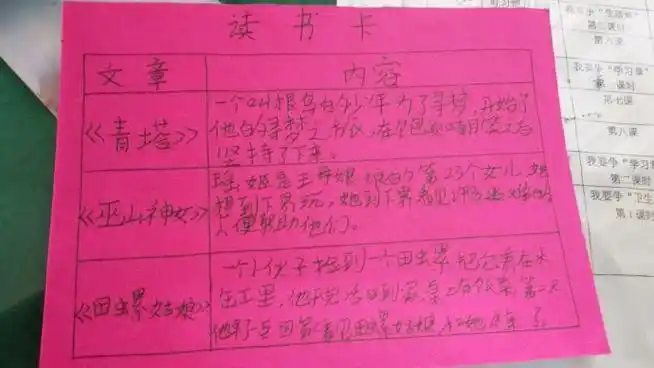 读书卡
文章 内容
《青塔》
一个叫根鸟的少年为了寻梦,开始了
他的寻梦之旅,在
坚持了下来。
《巫山神女》
瑶姬是王母娘娘的第23个女儿,她
想到下界玩,她到下界看见许多
人便帮助他们。
《田螺姑娘》
一个小伙子捡到一个田螺把它养在水
缸里,他干完活回到家桌上有饭菜第二天
他早早回家看见田螺姑娘和她
我要争“生活章”
第二课时
第六课
我要争“学习章”
课时
第七课
第八课
我要争“学习章
第二课时
我要争“卫生
第1课时